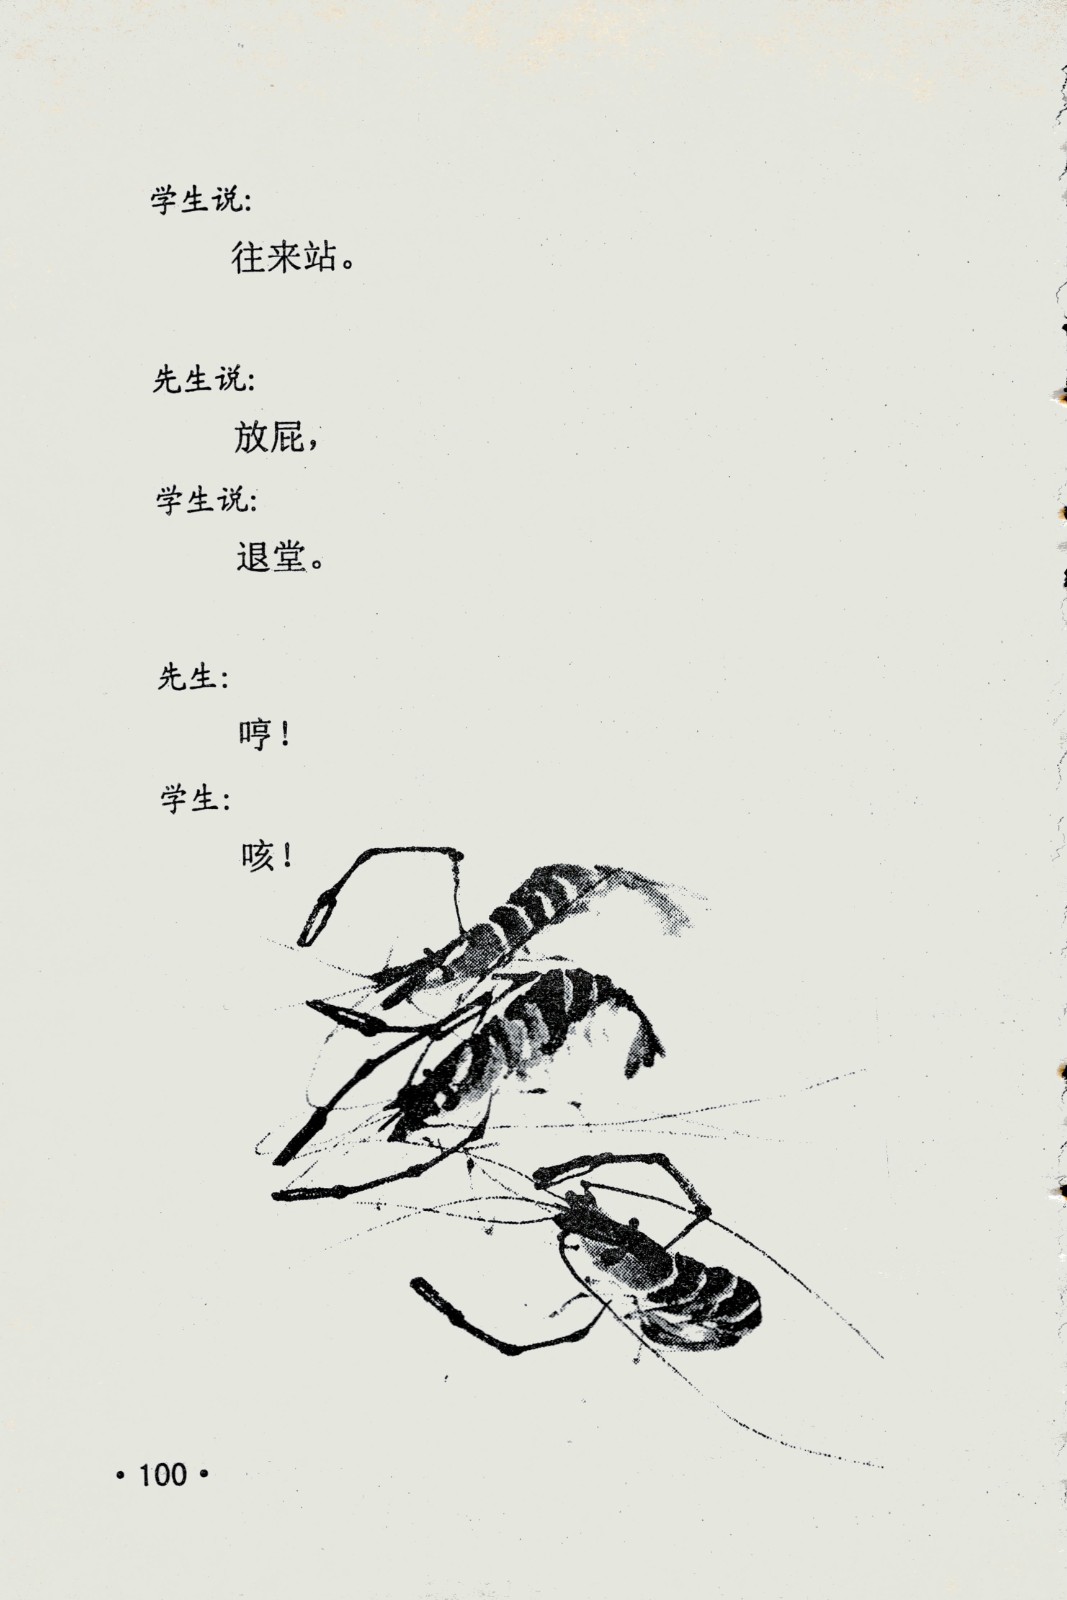 学生说:
往来站。
先生说:
放屁，
学生说:
退堂。
先生:
哼！
学生:
咳！
·100·